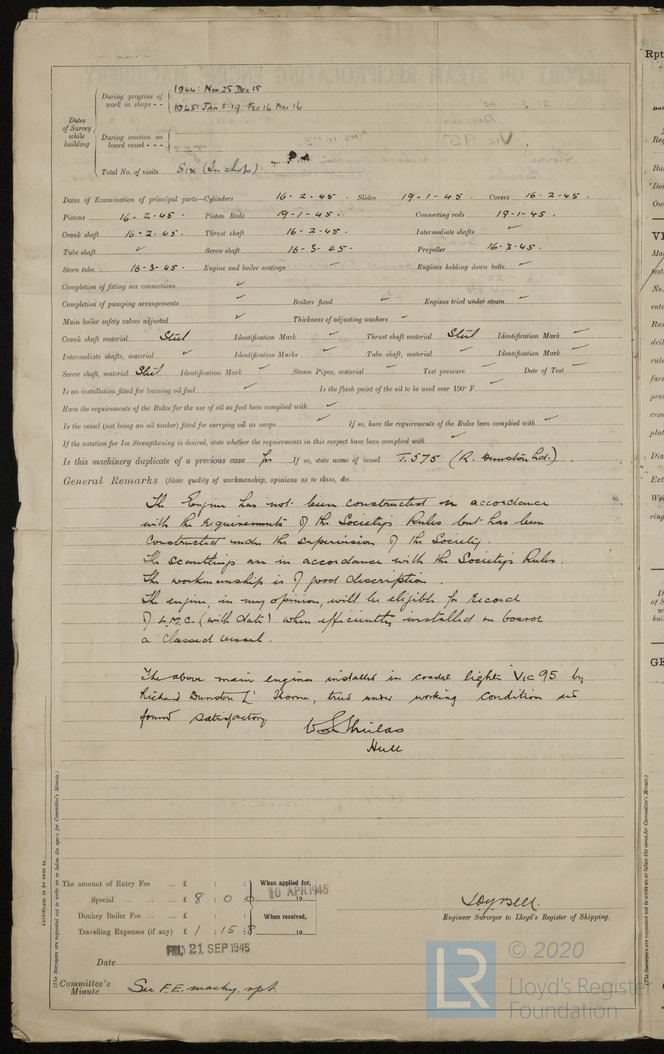 Dates of Survey while building
During progress of work in shops - - 1944: Nov 25 Dec 15
1945: Jan 5 19 Feb 16 Mar 16
During erection on board vessel - - -
Total No. of visits Six (In shops)
Dates of Examination of principal parts—Cylinders 16-2-45. Slides 19-1-45. Covers 16-2-45.
Pistons 16-2-45. Piston Rods 19-1-45. Connecting rods 19-1-45.
Crank shaft 16-2-45. Thrust shaft 16-2-45. Intermediate shafts ✓
Tube shaft ✓ Screw shaft 16-3-45. Propeller 16-3-45.
Stern tube 16-3-45. Engine and boiler seatings ✓ Engines holding down bolts ✓
Completion of fitting sea connections ✓
Completion of pumping arrangements ✓ Boilers fixed ✓ Engines tried under steam ✓
Main boiler safety valves adjusted ✓ Thickness of adjusting washers ✓
Crank shaft material Steel Identification Mark ✓ Thrust shaft material Steel Identification Mark ✓
Intermediate shafts, material ✓ Identification Marks ✓ Tube shaft, material ✓ Identification Mark ✓
Screw shaft, material Steel Identification Mark ✓ Steam Pipes, material ✓ Test pressure ✓ Date of Test ✓
Is an installation fitted for burning oil fuel ✓ Is the flash point of the oil to be used over 150° F. ✓
Have the requirements of the Rules for the use of oil as fuel been complied with ✓
Is the vessel (not being an oil tanker) fitted for carrying oil as cargo ✓ If so, have the requirements of the Rules been complied with ✓
If the notation for Ice Strengthening is desired, state whether the requirements in this respect have been complied with ✓
Is this machinery duplicate of a previous case Yes If so, state name of vessel T.575 (R. Dunston Ltd.)
General Remarks (State quality of workmanship, opinions as to class, &c.
The Engine has not been constructed in accordance
with the requirements of the Society's Rules but has been
constructed under the supervision of the Society.
The scantlings are in accordance with the Society's Rules.
The workmanship is of good description.
The engine, in my opinion, will be eligible for record
of L.M.C. (with date) when efficiently installed on board
a classed vessel.
The above main engines installed in coastal lighter Vic 95 by
Richard Dunston Ld Thorne, tried under working conditions and
found satisfactory
Hull
The amount of Entry Fee ... £ : : When applied for,
10 APR 1945
Special ... £ 8 : 0 : 0 19
Donkey Boiler Fee ... £ : : When received,
Travelling Expenses (if any) £ 1 : 15 : 8 19
Engineer Surveyor to Lloyd's Register of Shipping.
FRI. 21 SEP 1945
Date
Committee's Minute See F.E. machy. rpt.
Certificate to be sent to
(The Surveyors are requested not to write on or below the space for Committee's Minute.)
© 2020
LR
Lloyd's Register
Foundation